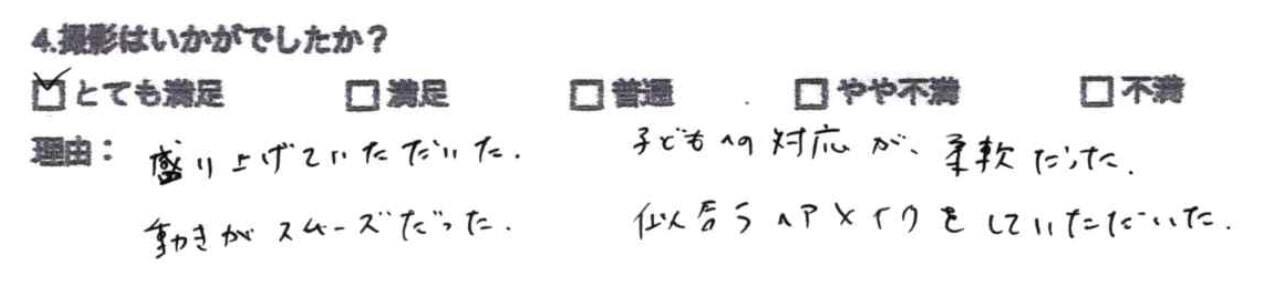 4.撮影はいかがでしたか？
☑とても満足 □満足 □普通 □やや不満 □不満
理由： 盛り上げていただいた. 子どもへの対応が、柔軟だった.
動きがスムーズだった. 似合うヘアメイクをしていただいた.